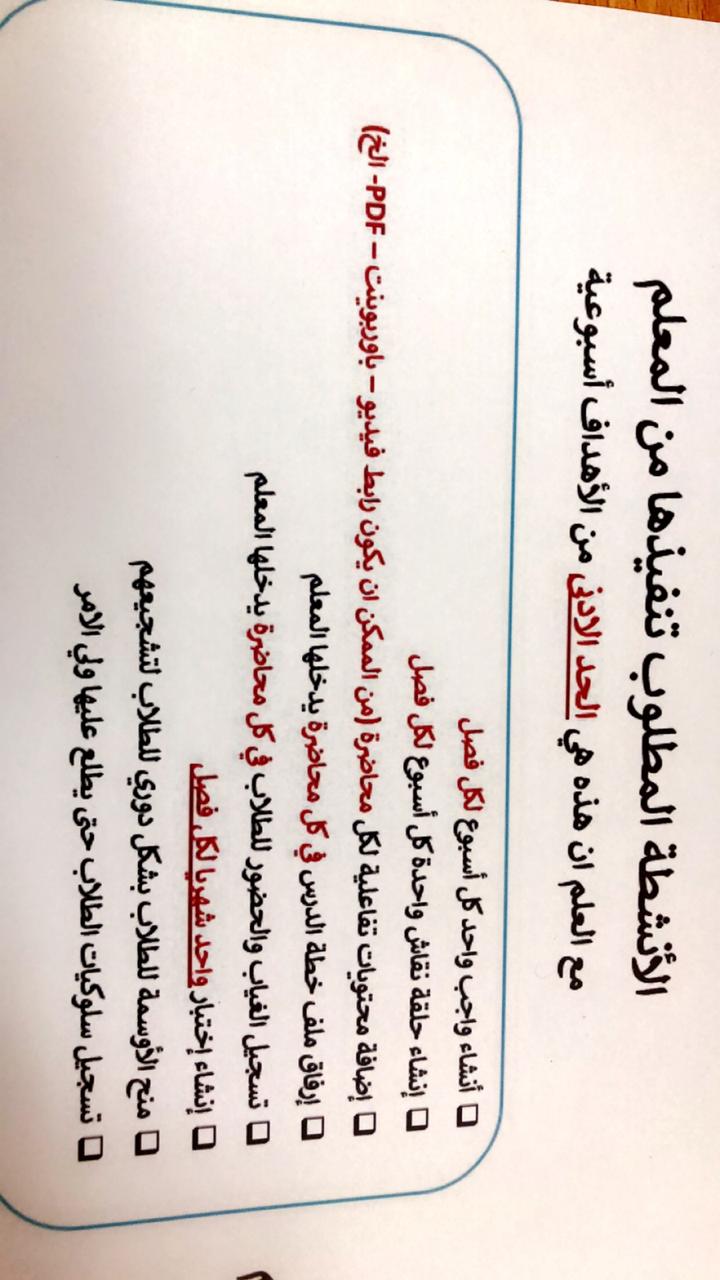 الأنشطة المطلوب تنفيذها من المعلم
مع العلم ان هذه هي الحد الادنى من الأهداف أسبوعية
❑ أنشاء واجب واحد كل أسبوع لكل فصل
❑ إنشاء حلقة نقاش واحدة كل أسبوع لكل فصل
❑ إضافة محتويات تفاعلية لكل محاضرة (من الممكن ان يكون رابط فيديو – باوربوينت – PDF- الخ)
❑ إرفاق ملف خطة الدرس في كل محاضرة يدخلها المعلم
❑ تسجيل الغياب والحضور للطلاب في كل محاضرة يدخلها المعلم
❑ إنشاء إختبار واحد شهريا لكل فصل
❑ منح الأوسمة للطلاب بشكل دوري للطلاب لتشجيعهم
❑ تسجيل سلوكيات الطلاب حتى يطلع عليها ولي الامر